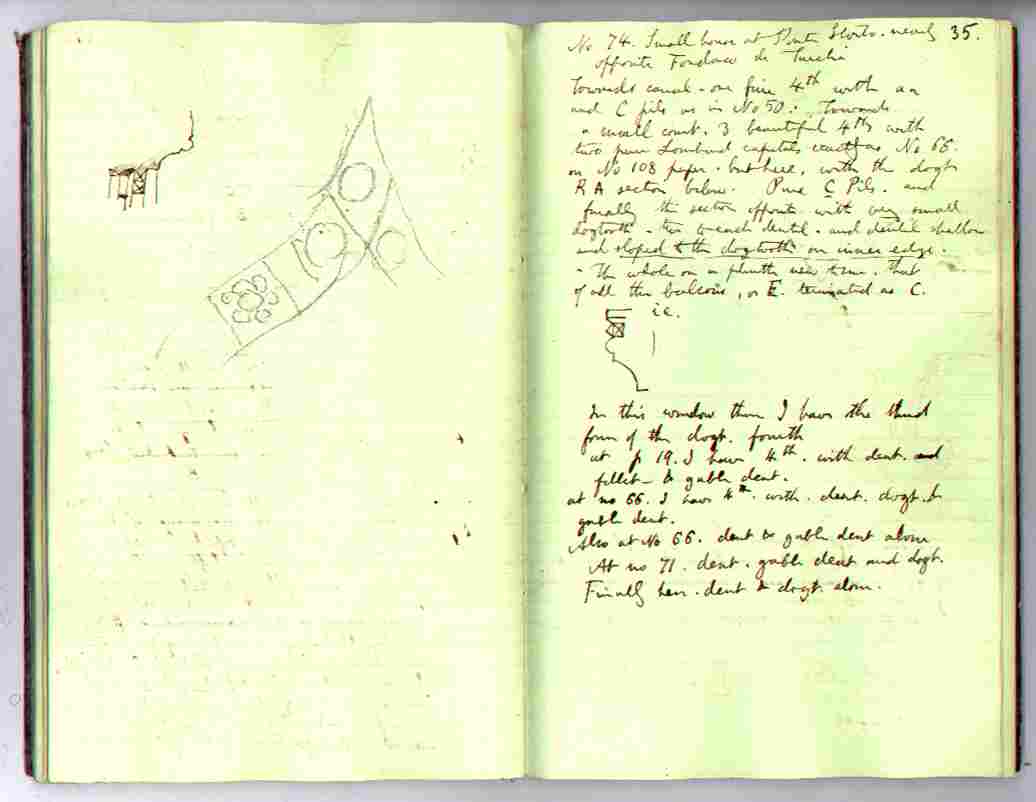 35.
No 74. Small house at Ponte Storto. nearly
opposite Fondaco de Turchi
Towards canal - one fine 4th with a a
and C pils as in No 50: Towards
a small court. 3 beautiful 4ths with
two pure Lombard capitals exactly as No 66.
on No 108 paper. but here, with the dogt
R A section below. Pure C Pils. and
finally the section opposite with very small
dogtooth - two to each dentil - and dentil shallow
and sloped to the dogtooth on inner edge.
- The whole on a plinth
of all the balconies, or E. terminated as C.
i.e.
In this window then I have the third
form of the dogt. fourth
at p 19. I have 4th. with dent. and
fillet - & gable dent.
at no 66. I have 4th. with. dent. dogt. &
gable dent.
Also at No 66. dent & gable dent alone
At no 71. dent. gable dent and dogt.
Finally here. dent & dogt. alone.